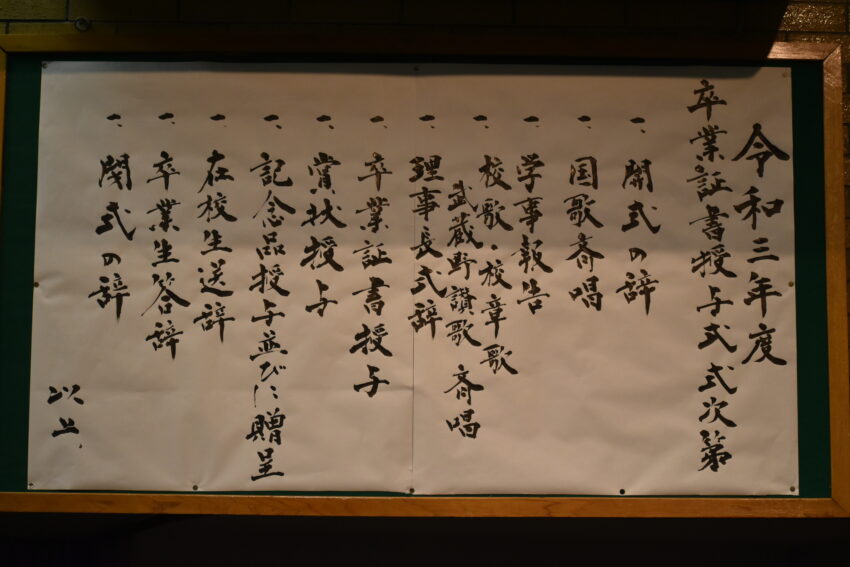 令和三年度
卒業証書授与式式次第
一、開式の辞
一、国歌斉唱
一、学事報告
一、校歌・校章歌
武蔵野讃歌 斉唱
一、理事長式辞
一、卒業証書授与
一、賞状授与
一、記念品授与並びに贈呈
一、在校生送辞
一、卒業生答辞
一、閉式の辞
以上、